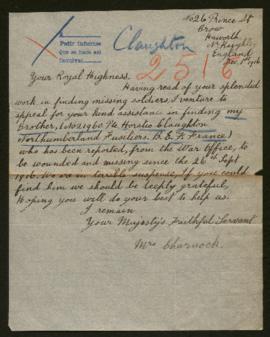 No 26 Prince St
Brow
Haworth
Nr Keighley
England
Dec 1st 1916
Claughton
2516
Your Royal Highness.
Having read of your splended
work in finding missing soldiers I venture to
appeal for your kind assistance in finding my
Brother, Pte Horatio Claughton
Northumberland Fusiliers. B.E.F. France)
who has been reported, from the War Office, to
be wounded and missing since the 26th Sept
1916. We are in terrible suspense, If you could
find him we should be deeply grateful,
Hoping you will do your best to help us.
I remain
Your Majestys Faithful Servant
Mrs Charnock.